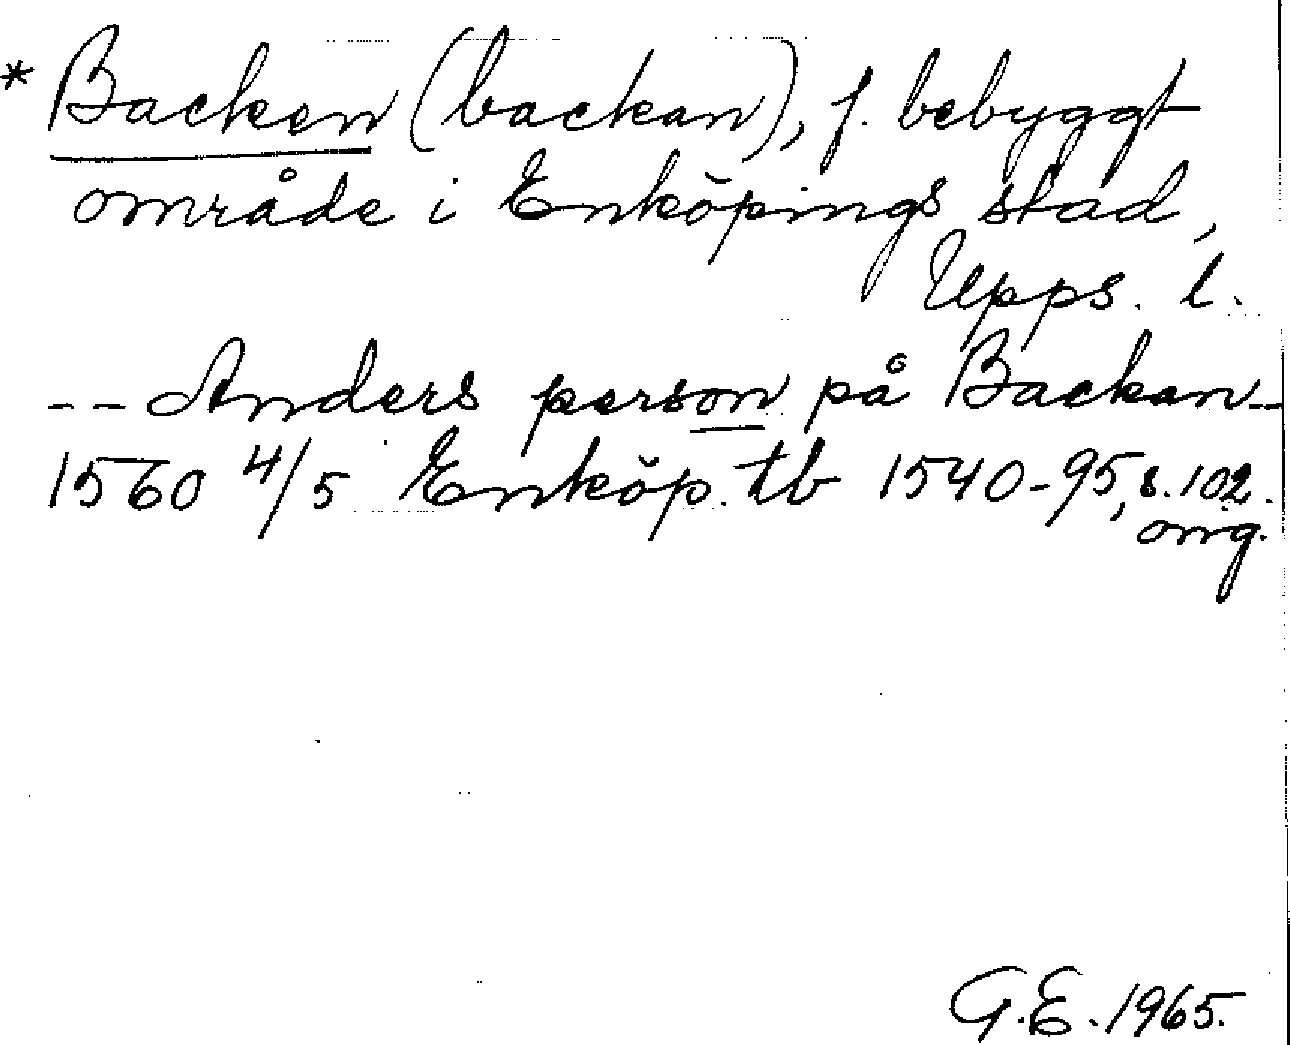 * Backen (backan), f. bebyggt
område i Enköpings stad,
Upps. l.
-- Anders person på Backan --
1560 4/5 Enköp. tb 1540-95, s. 102.
omg.
G.E. 1965.